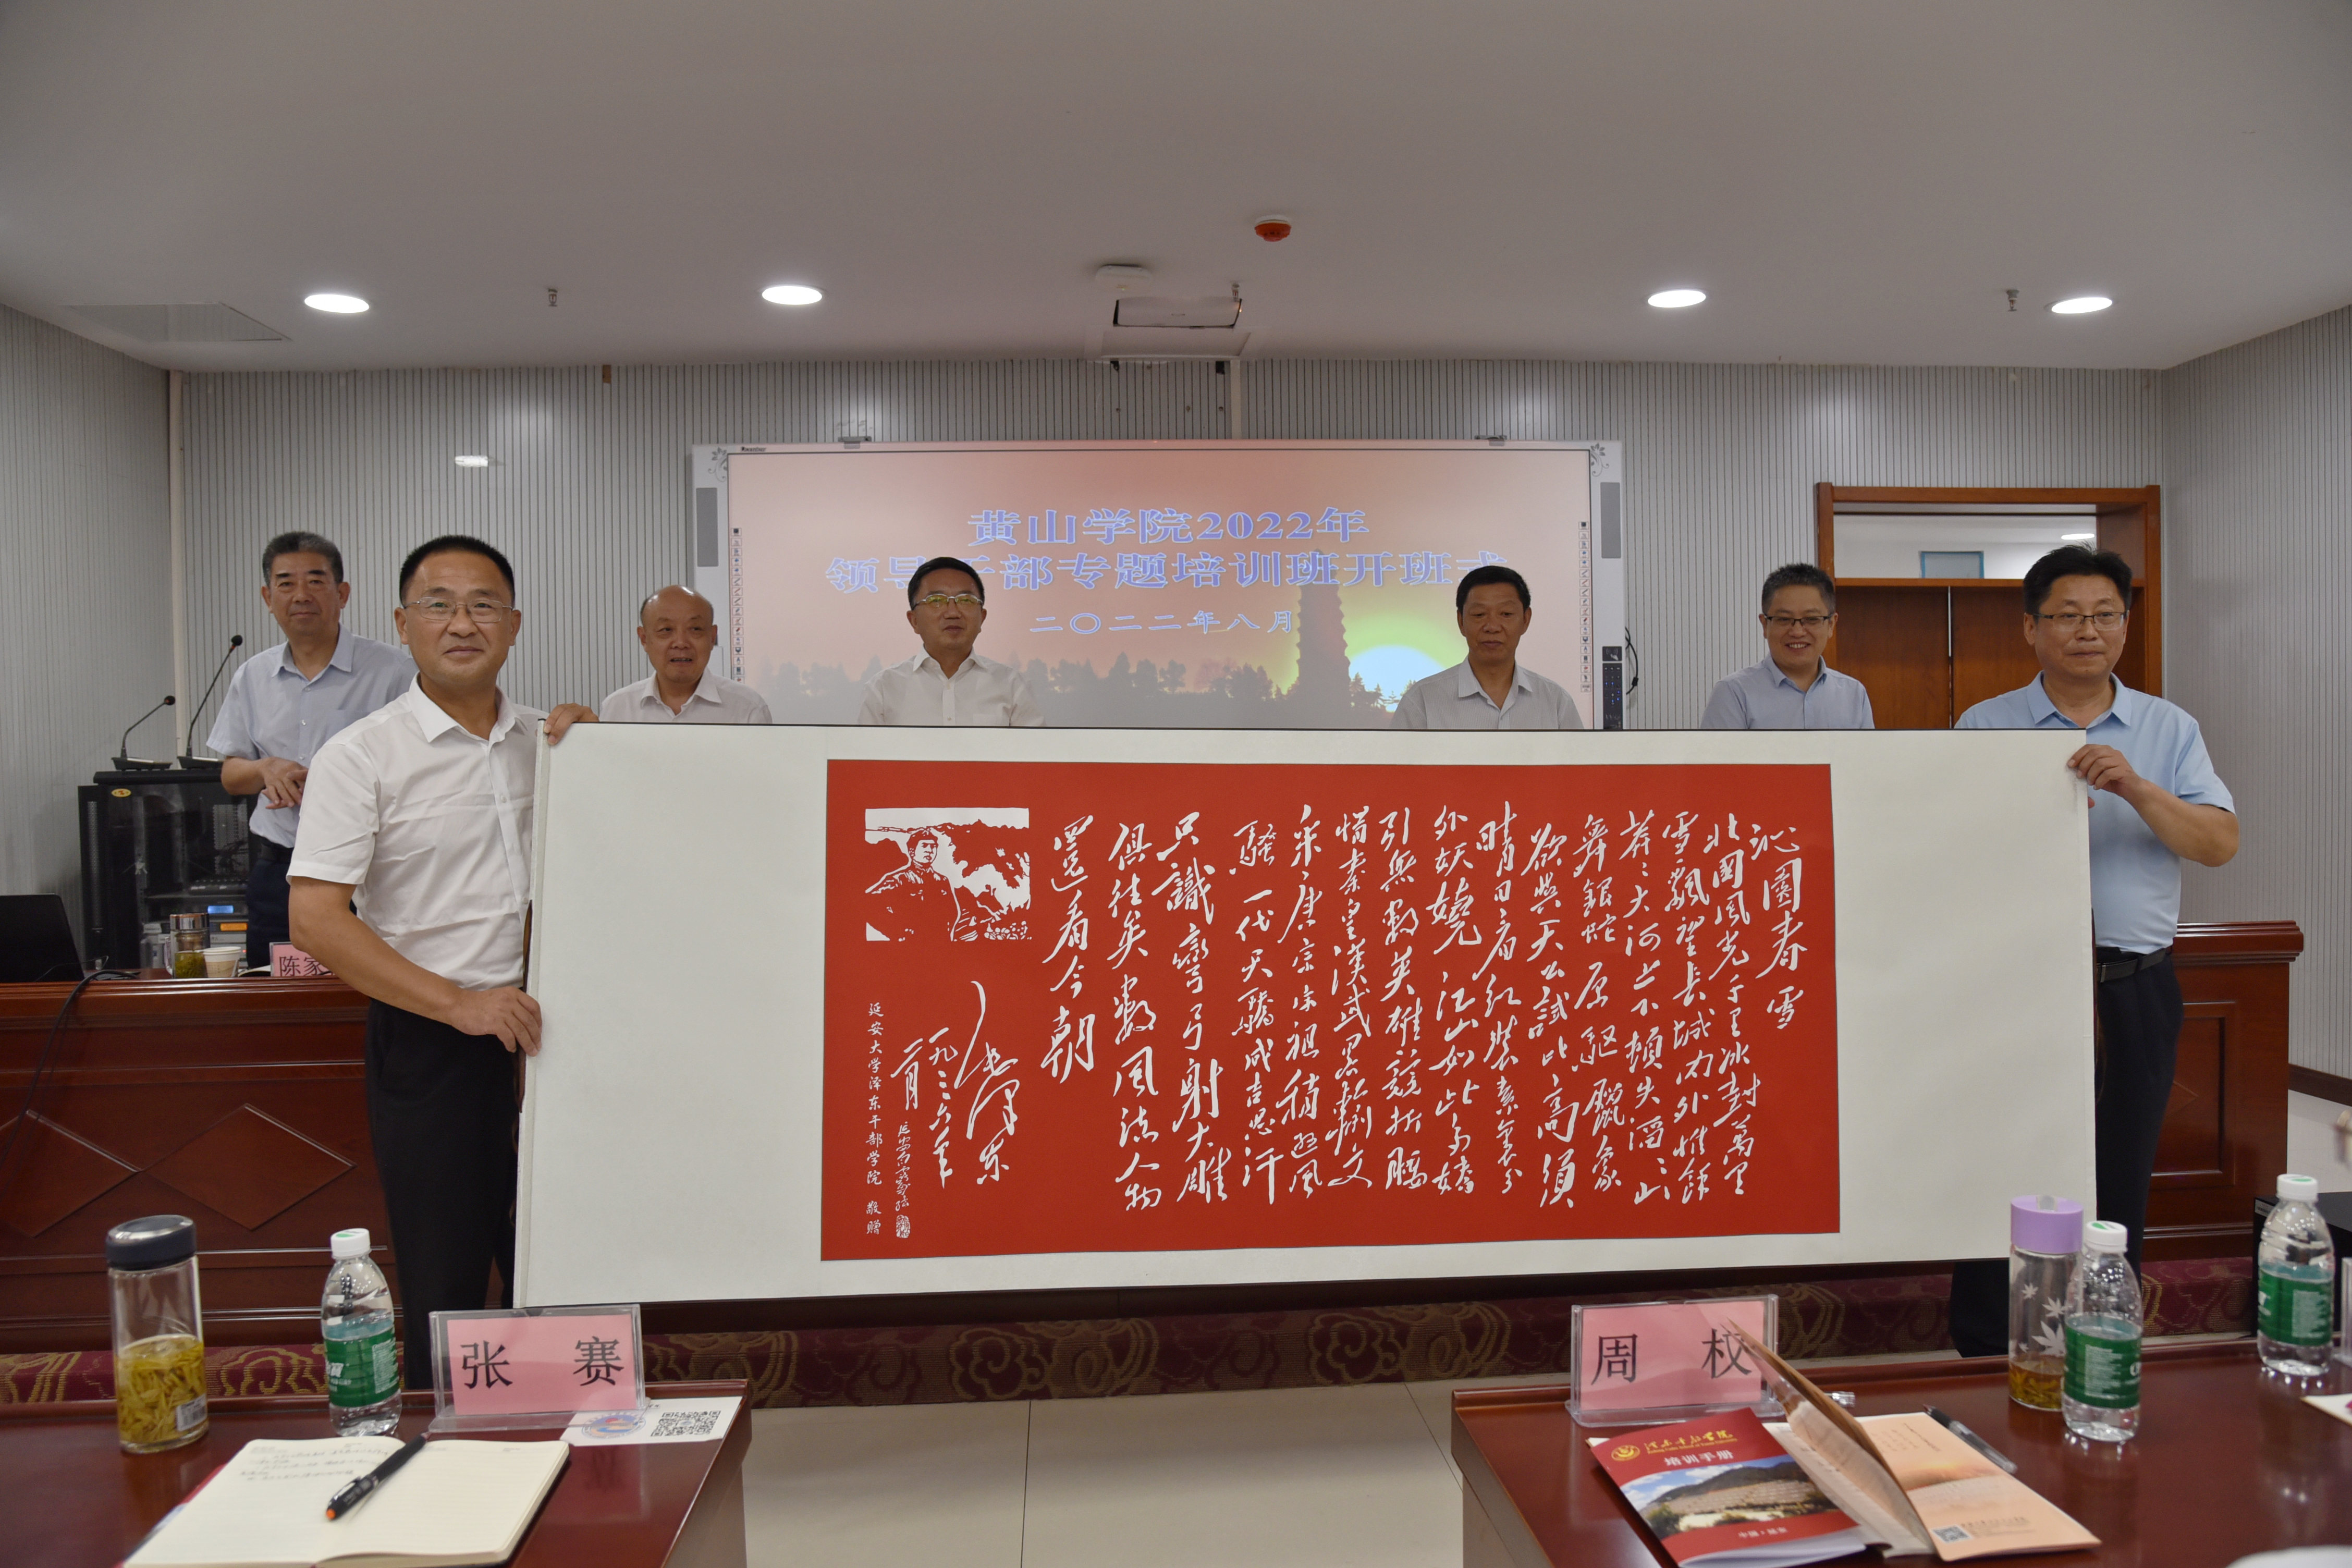 黄山学院2022年
领导干部专题培训班开班式
二〇二二年八月
沁園春 雪
北國風光千里冰封萬里
雪飄望長城内外惟餘
莽〻大河上下頓失滔〻山
舞銀蛇原驅臘象
欲與天公試比高須
晴日看紅裝素裹分
外妖嬈江山如此多嬌
引無數英雄競折腰
惜秦皇漢武畧輸文
采唐宗宋祖稍遜風
騷一代天驕成吉思汗
只識彎弓射大雕
俱往矣數風流人物
還看今朝
毛澤东
一九三六年
二月
延安大学泽东干部学院 敬赠
陈家
张 赛
周 权
泽东干部学院
培训手册
中国·延安